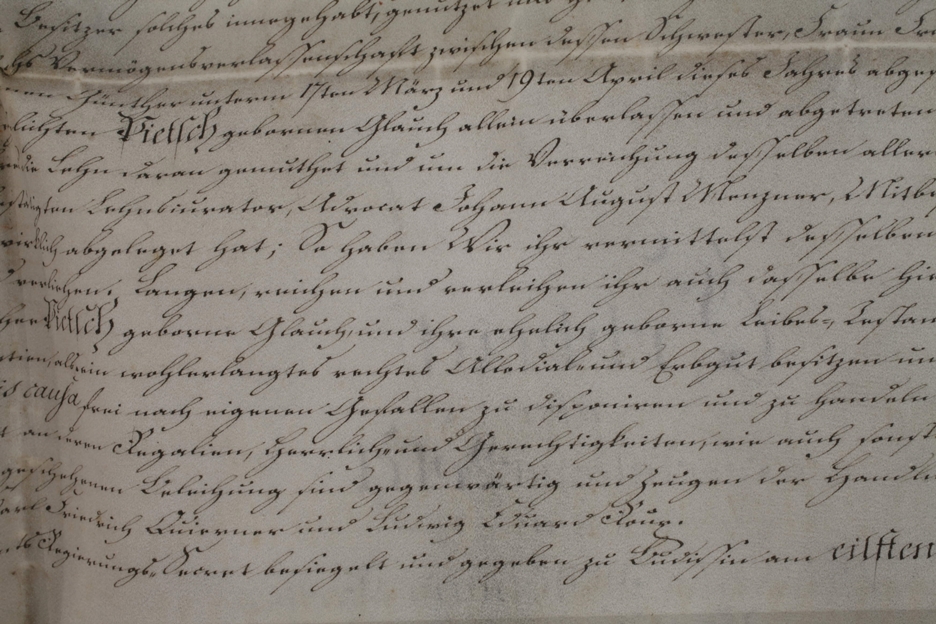 Besitzer solches innegehabt, genutzet und
Vermögensverlassenschaft zwischen dessen Schwester, Fraun
Günther unterm 17ten März und 19ten April dieses Jahres
Pietsch gebornen Glauch allein überlassen und abgetreten
die Lehn daran gemuthet und um die Verreichung desselben
Lehnscurator, Advocat Johann August Menzner,
abgeleget hat; So haben Wir ihr vermittelst desselben
verliehen; Langen, reichen und verleihen ihr auch dasselbe
Pietsch geborne Glauch, und ihre ehelich geborne Leibes-,
wohlerlangtes rechtes Allodial- und Erbgut besitzen
causa frei nach eigenen Gefallen zu disponiren und zu handeln
anderen Regalien, Herrlich- und Gerechtigkeiten, wie auch sonst
geschehenen Beleihung sind gegenwärtig und Zeugen der
Friedrich und Ludwig Eduard
Regierungs-Secret besiegelt und gegeben zu Budissin am eilften